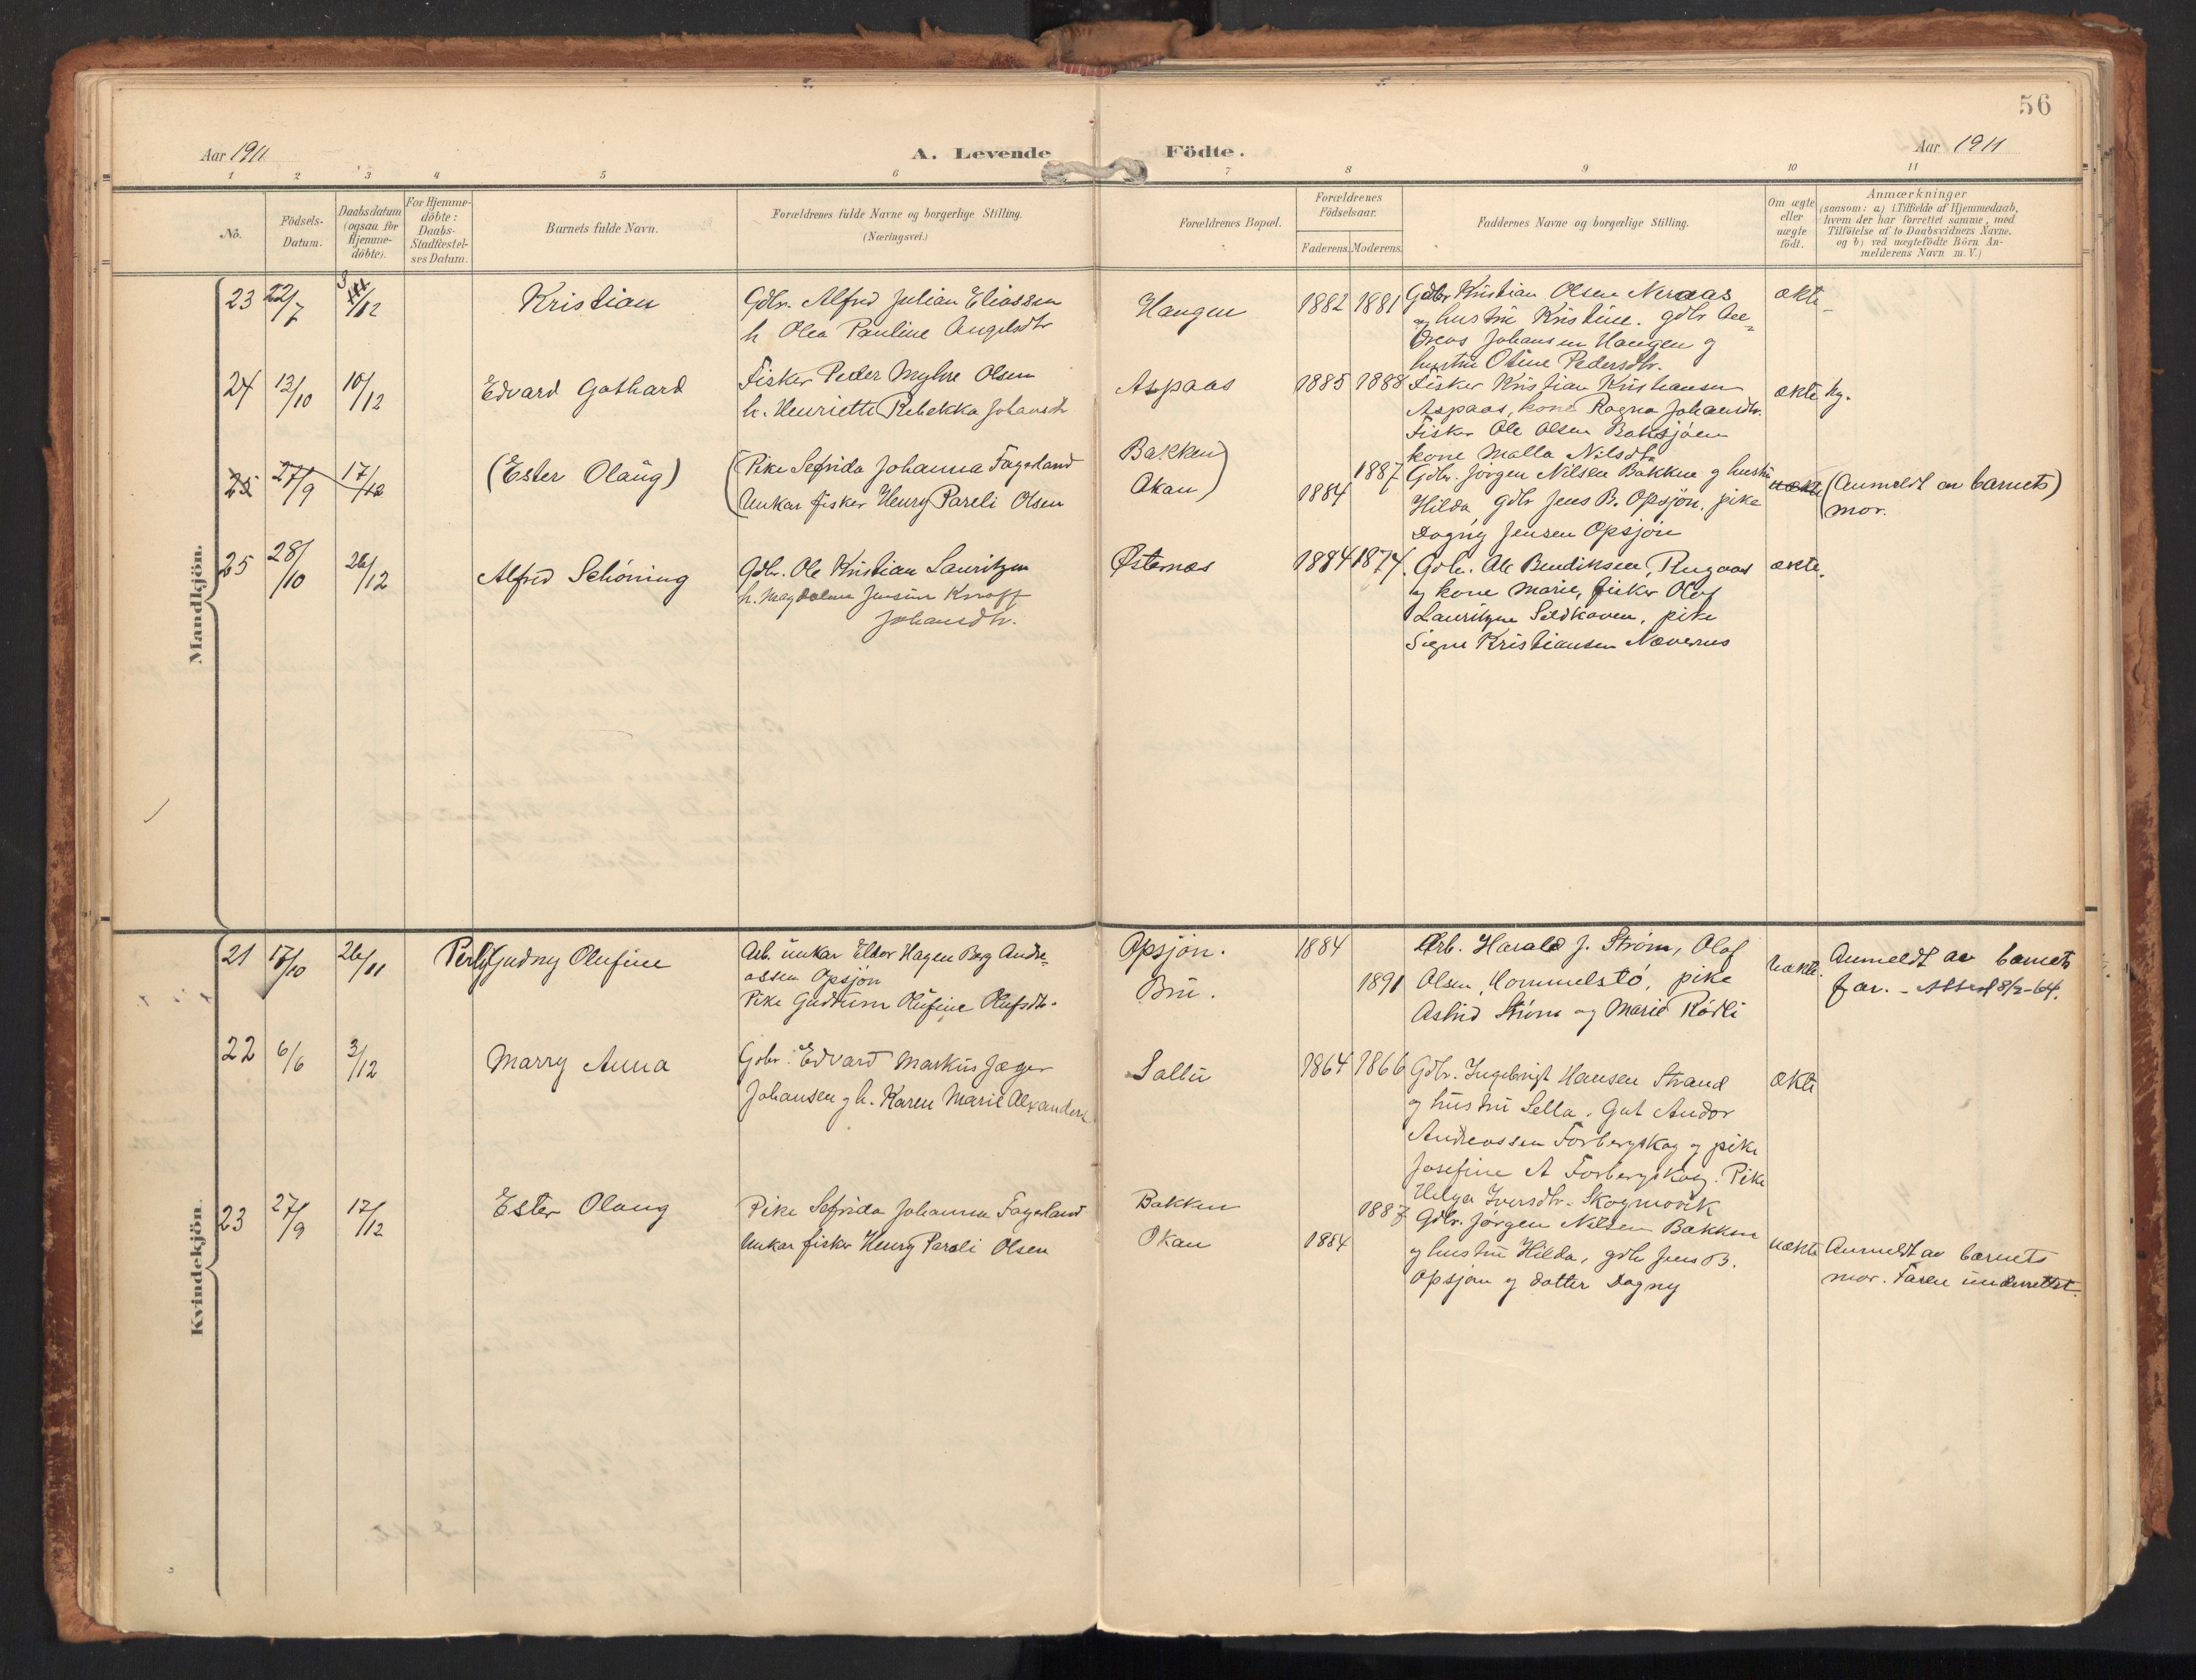 56
Aar 1911
A. Levende Födte.
Aar 1911
1 2 3 4 5 6 7 8 9 10 11
No.
Födsels-
Datum.
Daabsdatum
(ogsaa for
Hjemme-
döbte).
For Hjemme-
döbte:
Daabs-
Stadfæstel-
ses Datum.
Barnets fulde Navn.
Forældrenes fulde Navne og borgerlige Stilling.
(Næringsvei.)
Forældrenes Bopæl.
Forældrenes
Födselsaar.
Faderens. Moderens.
Faddernes Navne og borgerlige Stilling.
Om ægte
eller
uægte
födt.
Anmærkninger
(saasom: a) i Tilfælde af Hjemmedaab,
hvem der har forrettet samme, med
Tilföielse af to Daabsvidners Navne.
og b) ved uægtefödte Börn An-
melderens Navn m. V.)
Mandkjön.
23 22/7 3/12
Kristian
Gdbr. Alfred Julian Eliassen
h. Olea Pauline Angelsdtr
Haugen
1882 1881
Gdbr Kristian Olsen Neraas
og hustru Kristine. gdbr An-
dreas Johansen Haugen og
hustru Otine Pedersdtr.
ekte
24 13/10 10/12
Edvard Gothard
Fisker Peder Myhre Olsen
h. Henriette Rebekka Johansdtr
Aspaas
1885 1888
Fisker Kristian Kristiansen
Aspaas, kone Ragna Johansdtr.
Fisker Ole Olsen Baksjøen
kone Malla Nilsdtr
ekte
25 27/9 17/12
(Ester Olaug)
(Pike Sefrida Johanna Fagerland
Unkar fisker Henry Pareli Olsen
Bakken)
Okan)
1887
1884
Gdbr. Jørgen Nilsen Bakken og hustru
Hilda gdbr Jens B. Opsjøn, pike
Dagny Jensen Opsjøn
uekte
(Anmeldt av barnets)
mor.
25 28/10 26/12
Alfred Schöning
Gdbr. Ole Kristian Lauritzen
h. Magdalene Jensine Knoff
Johansdtr.
Østernes
1884 1874
Gdbr. Ole Bendiksen,
og kone Marie, fisker Olof
Lauritzen Sildhaven, pike
Signe Kristiansen Nævernes
ekte.
Kvindekjön.
21 17/10 26/11
Perly Gudny Olufine
Arb. unkar Eldor Hagen Berg Andre-
assen Opsjøn
Pike Gudrun Olufine Olufsdtr.
Opsjøn.
Bru.
1884
1891
Arb. Harald J. Strøm, Olof
Olsen, Hommelstø, pike
Astrid Strøm og Marie Rødli
uekte.
Anmeldt av barnets
far. - Attest 8/2-64.
22 6/6 3/12
Marry Anna
Gdbr. Edvard Markus Jæger
Johansen g h. Karen Marie Alexandersen
Salbu
1864 1866
Gdbr. Ingebrigt Hansen Strand
og hustru Sella. Gut Andor
Andreassen Forbergskog og pike
Josefine A Forbergskog. Pike
Helga Iversdtr. Skogmovik
ekte
23 27/9 17/12
Ester Olaug
Pike Sefrida Johanna Fagerland
Unkar fisker Henry Pareli Olsen
Bakken
Okan
1887
1884
Gdbr. Jørgen Nilsen Bakken
og hustru Hilda, gdbr Jens B.
Opsjøn og datter Dagny
uekte
Anmeldt av barnets
mor. Faren underrettet.